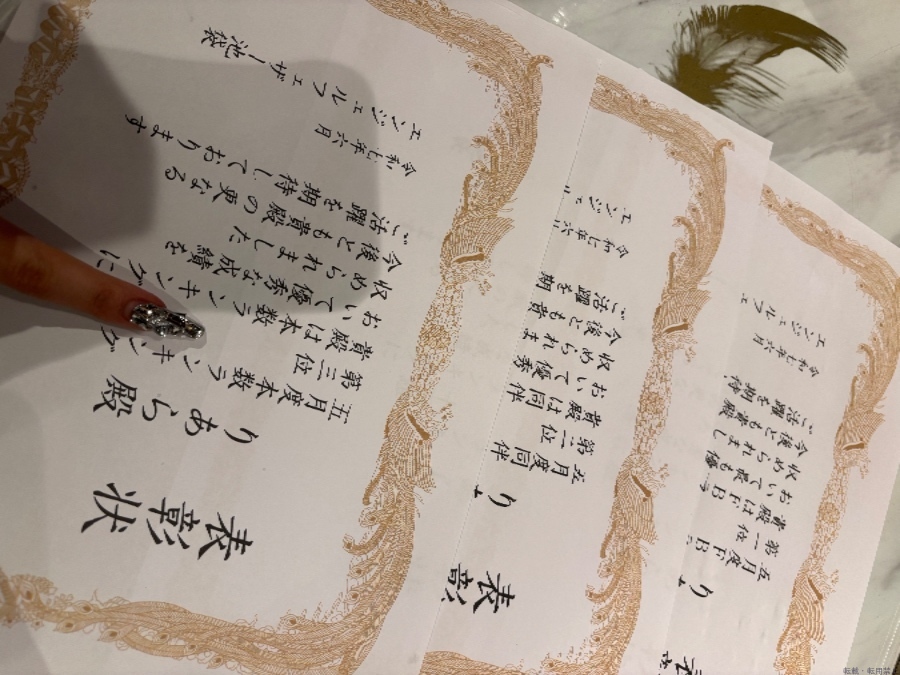 表彰状
りあら殿
五月度本数ランキング
第三位
貴殿は本数ランキングに
おいて優秀な成績を
収められました
今後とも貴殿の更なる
ご活躍を期待しております
令和七年六月
エンジェルフェザー池袋
表彰
り
五月度同伴
第二位
貴殿は同伴
おいて優秀
収められま
今後とも貴
ご活躍を期
令和七年六
エンジェ
表
り
五月度FB
第一位
貴殿はFB
おいて最も優
収められまし
今後とも貴殿
ご活躍を期待
令和七年六月
エンジェルフェ
転載・転用禁止